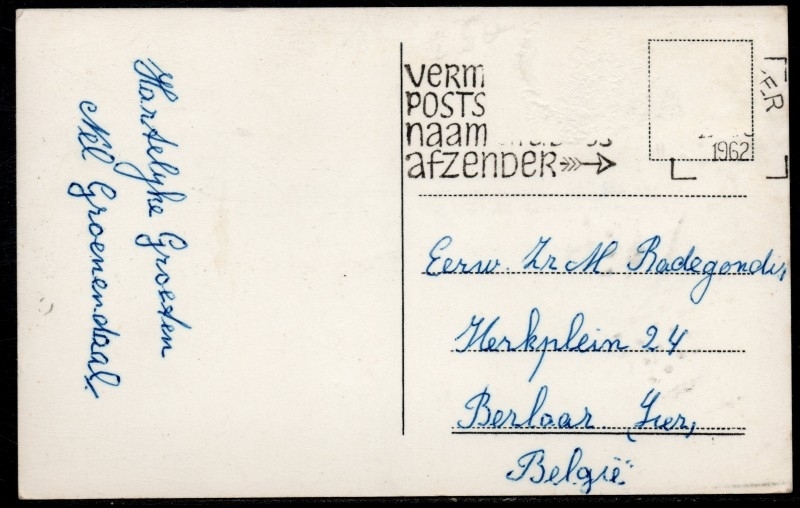 Hartelijke Groeten
Nel Groenendaal.
VERM
POSTS
naam
afzender
1962
Eerw. Zr M. Radegondis
Herkplein 24
Berlaar. Lier,
België